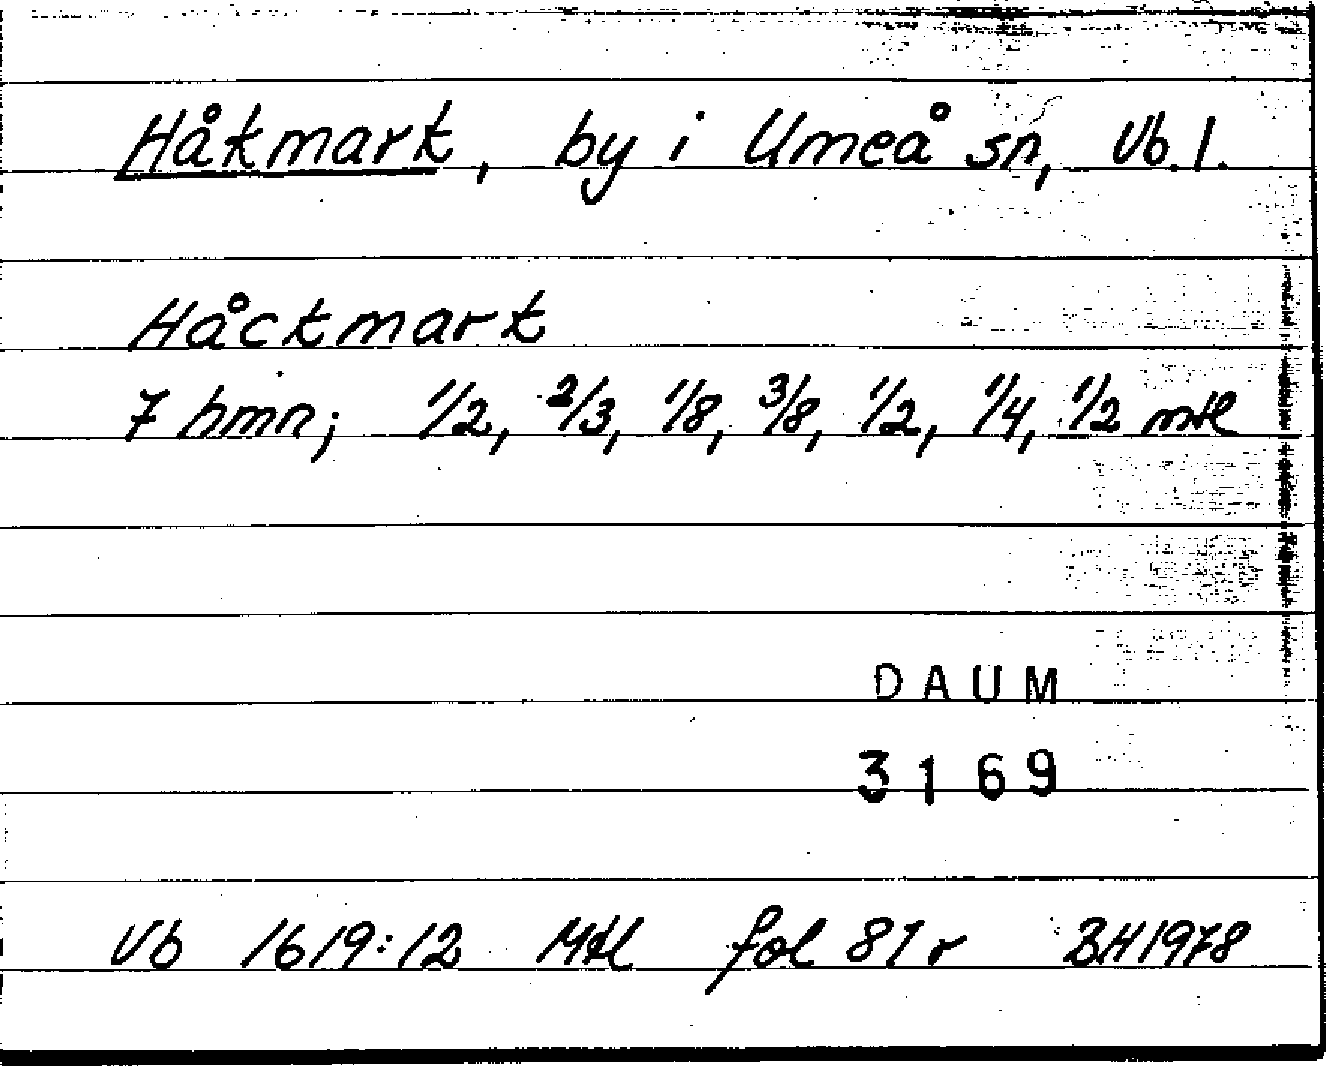 Håkmark, by i Umeå sn, Vb. l.
Håckmark
7 hmn; 1/2, 2/3, 1/8, 3/8, 1/2, 1/4, 1/2 mtl
DAUM
3169
Vb 1619:12 Mtl fol 87 r BH 1978